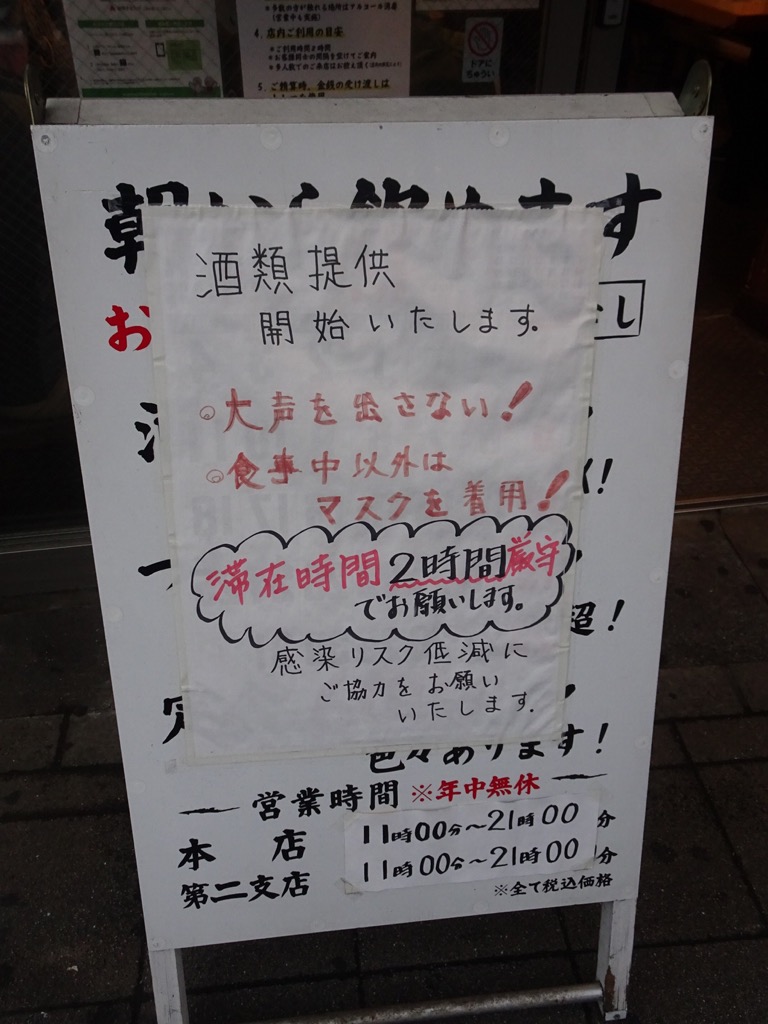 4. 店内ご利用の目安
※ご利用時間2時間
5. ご精算時、金銭の受け渡しは
朝から飲めます
お
酒類提供
開始いたします。
し
◦大声を出さない！
◦食事中以外は
マスクを着用！
滞在時間2時間厳守
でお願いします。
超！
感染リスク低減に
ご協力をお願い
いたします。
色々あります！
営業時間 ※年中無休
本店 11時00分〜21時00分
第二支店 11時00分〜21時00分
※全て税込価格